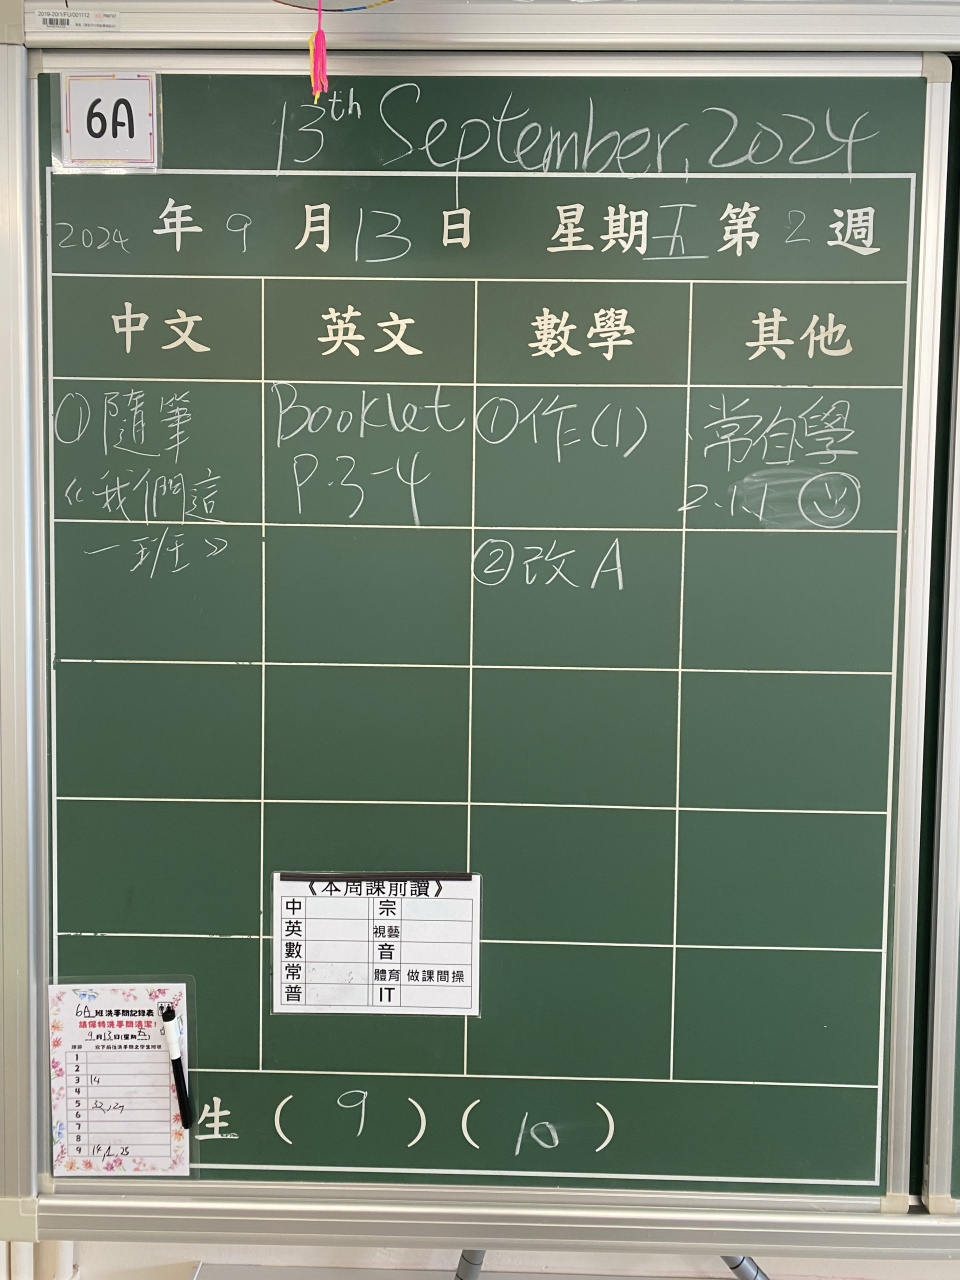 2019-20/1/FU/001112
6A
13th September, 2024
2024 年 9 月 13 日 星期五 第 2 週
中文 英文 數學 其他
①隨筆
《我們這
一班》
Booklet
P.3-4
①作(1)
②改A
常自學
2.1.1
《本周課前讀》
中 宗
英 視藝
數 音
常 體育 做課間操
普 IT
6A 班洗手間記錄表
請保持洗手間清潔!
9月13日(星期五)
1
2
3 14
4
5 32,27
6
7
8
9 14,1,25
生 ( 9 ) ( 10 )